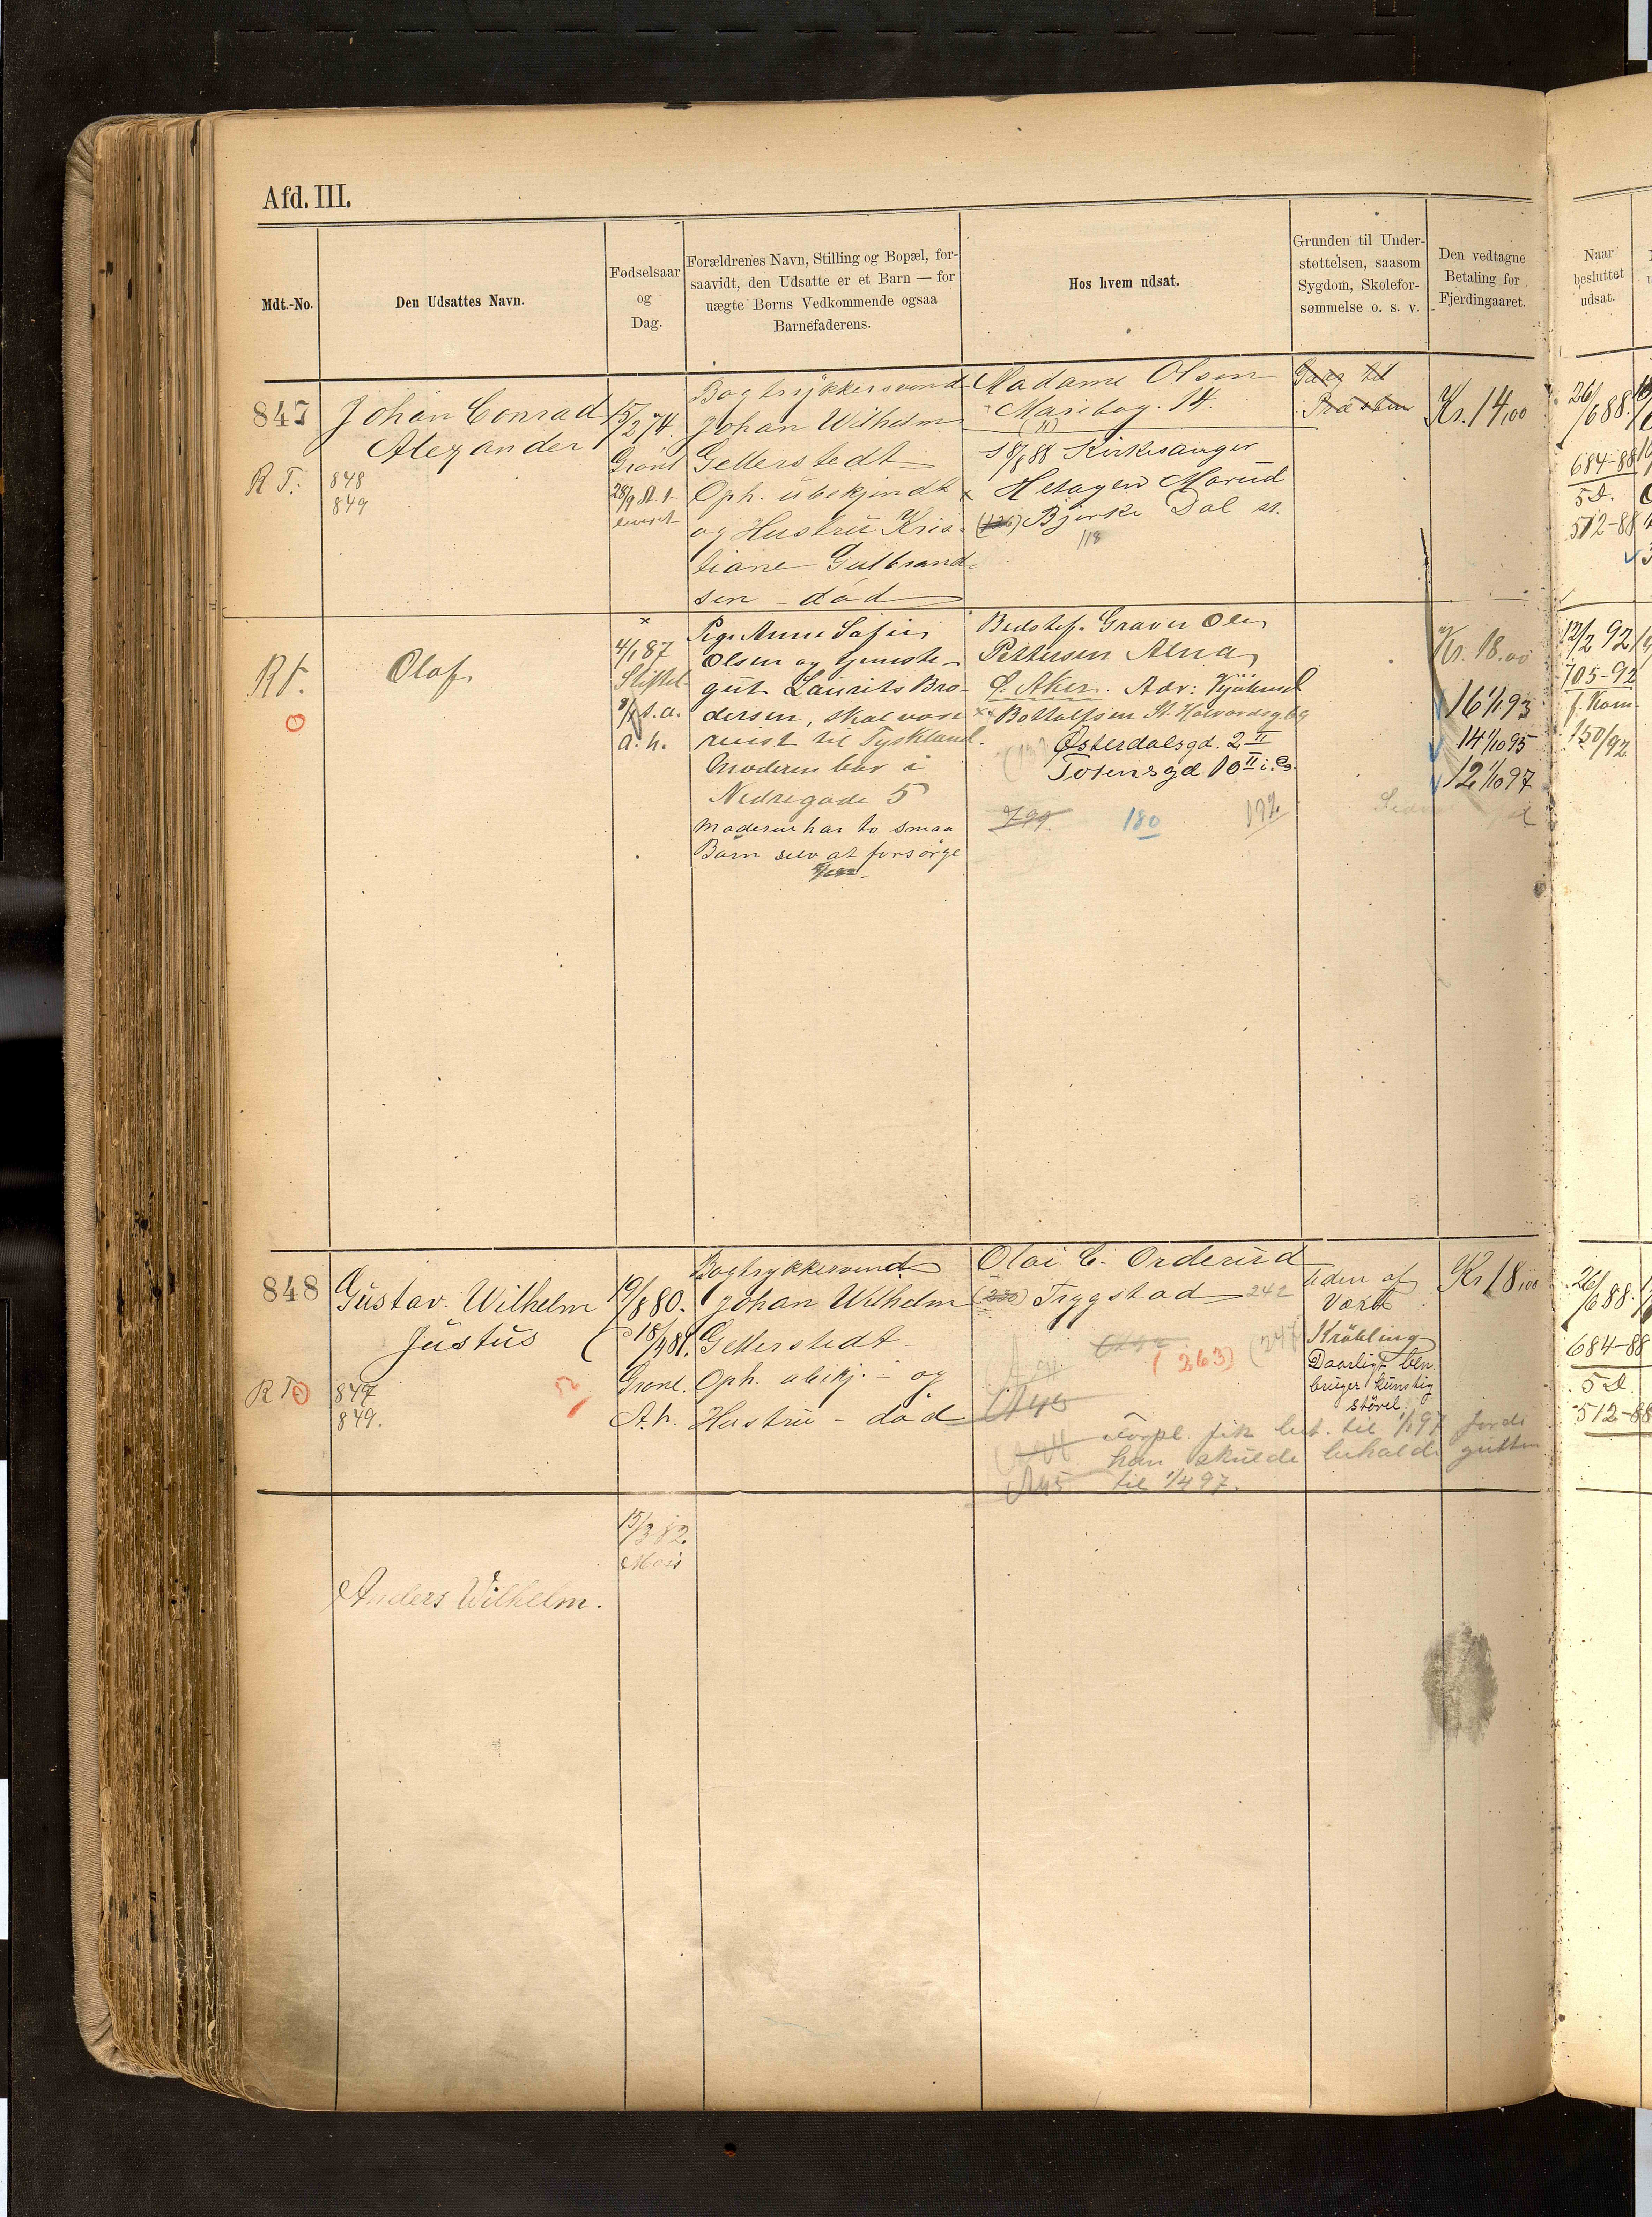 Afd. III.
Mdt.-No.
Den Udsattes Navn.
Fødselsaar
og
Dag.
Forældrenes Navn, Stilling og Bopæl, for-
saavidt, den Udsatte er et Barn — for
uægte Børns Vedkommende ogsaa
Barnefaderens.
Hos hvem udsat.
Grunden til Under-
støttelsen, saasom
Sygdom, Skolefor-
sømmelse o. s. v.
Den vedtagne
Betaling for
Fjerdingaaret.
Naar
besluttet
udsat.
847
Johan Conrad
Alexander
R T.
848
849
15/2 74.
Grønl
28/9
Bogtrykkersvend
Johan Wilhelm
Gellerstedt
Oph. ubekjendt
og Hustru Kris-
tiane Gulbrand-
sen - død
Madame Olsen
Maribog. 14.
18/8 88 Kirkesanger
Helagen Morud
Bjørke Dal st.
118
Kr. 14,00
26/6 88.
684-88
5 D.
512-88
Olaf
4/1 87
a. h.
Pige Anne Sofie
Olsen og tjeneste-
gut Laurits Bro-
dersen, skal være
reist til Tyskland.
Moderen bor i
Nedregade 5
Moderen har to smaa
Børn selv at forsørge
Bedstef. Graver Ole
Pettersen Alna
Ø. Aker. Adr:
Bottolfsen St. Halvardsg. 69
Østerdalsgd. 2 II
Totensgd 10 II
180
192
Kr. 18.00
16 1/1 93
14 1/10 95
12 1/10 97
12/2 92
705-92
f. Kom.
150/92
848
Gustav. Wilhelm
Justus
R T.
847
849.
19/8 80.
Grønl.
A. h.
Bogtrykkersvend
Johan Wilhelm
Gellerstedt -
Oph. ubekj. - og
Hustru - død
Olai C. Orderud
Tryggstad 242
(263)
Uden af
Værk
Krøbling
Daarligt ben
bruger kunstig
støvel.
Forpl. fik bet. til 1/1 97 fordi
han skulde beholde gutten
til 1/4 97.
Kr 18,00
26/6 88.
684-88
5 D.
512-88
15/3 82.
Moss
Anders Wilhelm.